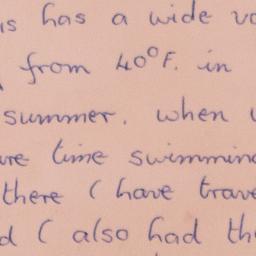 is has a wide va
from 40°F. in
summer. when
ure time swimming
there (have trave
d ( also had th